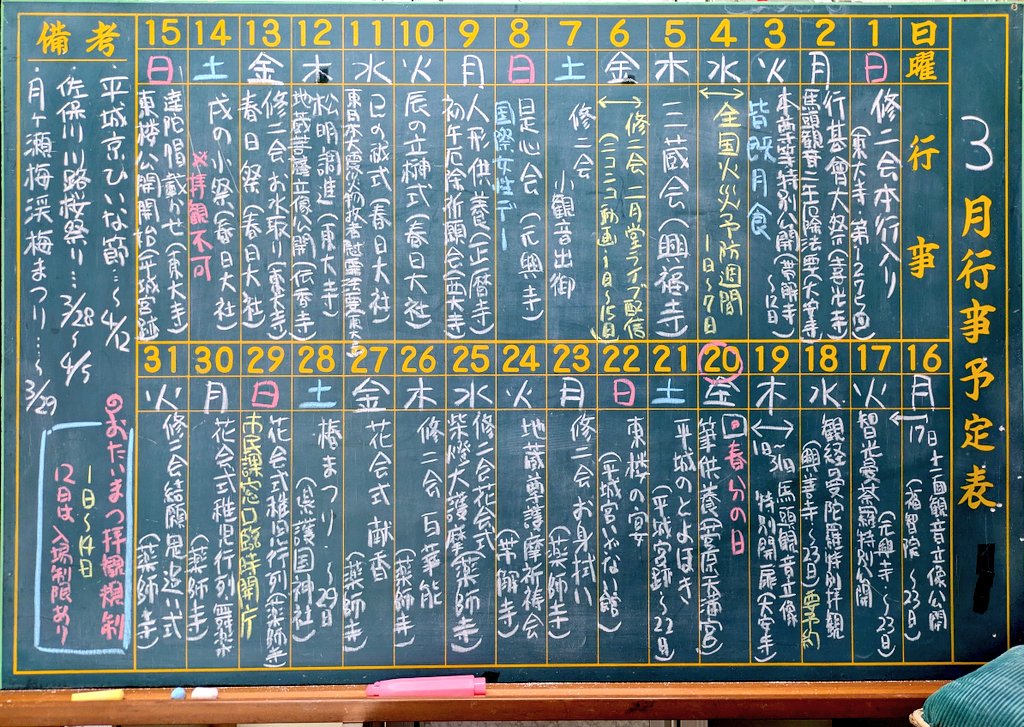 3月行事予定表
日曜 行事
1 日 修二会本行入り
(東大寺 第1275回)
2 月 行基會大祭(喜光寺)
馬頭観音二午厄除法要(大安寺)
3 火 本尊等特別公開(帯解寺 〜12日)
皆既月食
4 水 全国火災予防週間
1日〜7日
5 木 三蔵会(興福寺)
6 金 修二会 二月堂ライブ配信
(ニコニコ動画 1日〜15日)
7 土 修二会
小観音出御
8 日 是心会(元興寺)
国際女性デー
9 月 人形供養(正暦寺)
初午厄除祈願会(西大寺)
10 火 辰の立榊式(春日大社)
11 水 巳の祓式(春日大社)
東日本大震災物故者慰霊法要(東大寺)
12 木 松明調進(東大寺)
地蔵菩薩立像公開(伝香寺)
13 金 修二会お水取り(東大寺)
春日祭(春日大社)
14 土 戌の小祭(春日大社)
※拝観不可
15 日 達陀帽戴かせ(東大寺)
東楼公開開始(平城宮跡)
16 月 17日 十一面観音立像公開
(福智院 〜23日)
17 火 智光曼荼羅特別公開
(元興寺 〜23日)
18 水 観経曼陀羅特別拝観
(興善寺 〜23日)要予約
19 木 1日 31日 馬頭観音立像
特別開扉(大安寺)
20 金 春分の日
筆供養(菅原天満宮)
21 土 平城のとよほき
(平城宮跡 〜22日)
22 日 東楼の宴
(平城宮いざない館)
23 月 修二会お身拭い
(薬師寺)
24 火 地蔵尊護摩祈祷会
(帯解寺)
25 水 修二会花会式
柴燈大護摩(薬師寺)
26 木 修二会 百華能
(薬師寺)
27 金 花会式 献香
(薬師寺)
28 土 椿まつり 〜29日
(県護国神社)
29 日 花会式稚児行列(薬師寺)
市民課窓口臨時開庁
30 月 花会式稚児行列 舞楽
(薬師寺)
31 火 修二会結願 鬼追い式
(薬師寺)
備考
平城京ひいな節…〜4/12
佐保川川路桜祭り…3/28〜4/5
月ヶ瀬梅渓梅まつり…〜3/29
◎おたいまつ拝観規制
1日〜14日
12日は入場制限あり